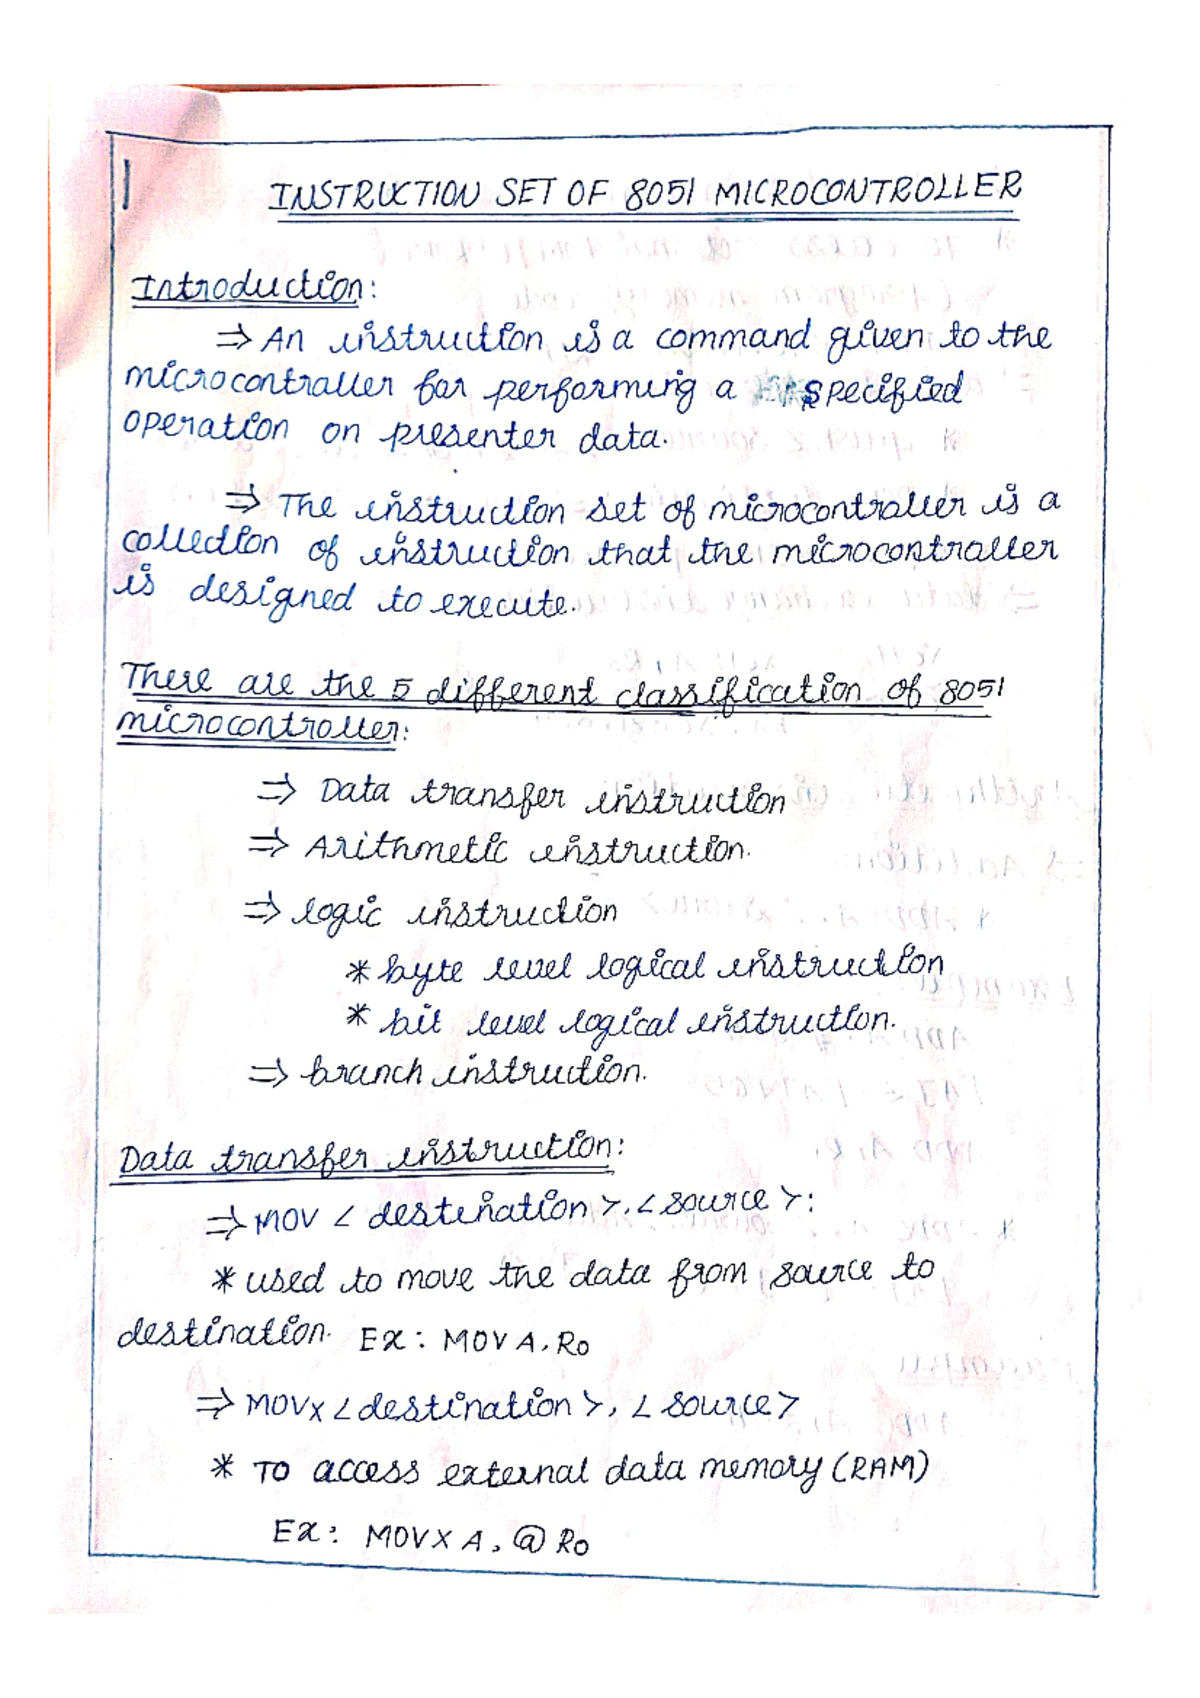 1
INSTRUCTION SET OF 8051 MICROCONTROLLER
Introduction:
⇒ An instruction is a command given to the
microcontroller for performing a specified
operation on presenter data.
⇒ The instruction set of microcontroller is a
collection of instruction that the microcontroller
is designed to execute.
There are the 5 different classification of 8051
microcontroller:
⇒ Data transfer instruction
⇒ Arithmetic instruction.
⇒ logic instruction
* byte level logical instruction
* bit level logical instruction.
⇒ branch instruction.
Data transfer instruction:
⇒ MOV < destination >, < source >:
* used to move the data from source to
destination. Ex: MOV A, R0
⇒ MOVX < destination >, < source >
* To access external data memory (RAM)
Ex: MOVX A, @ R0